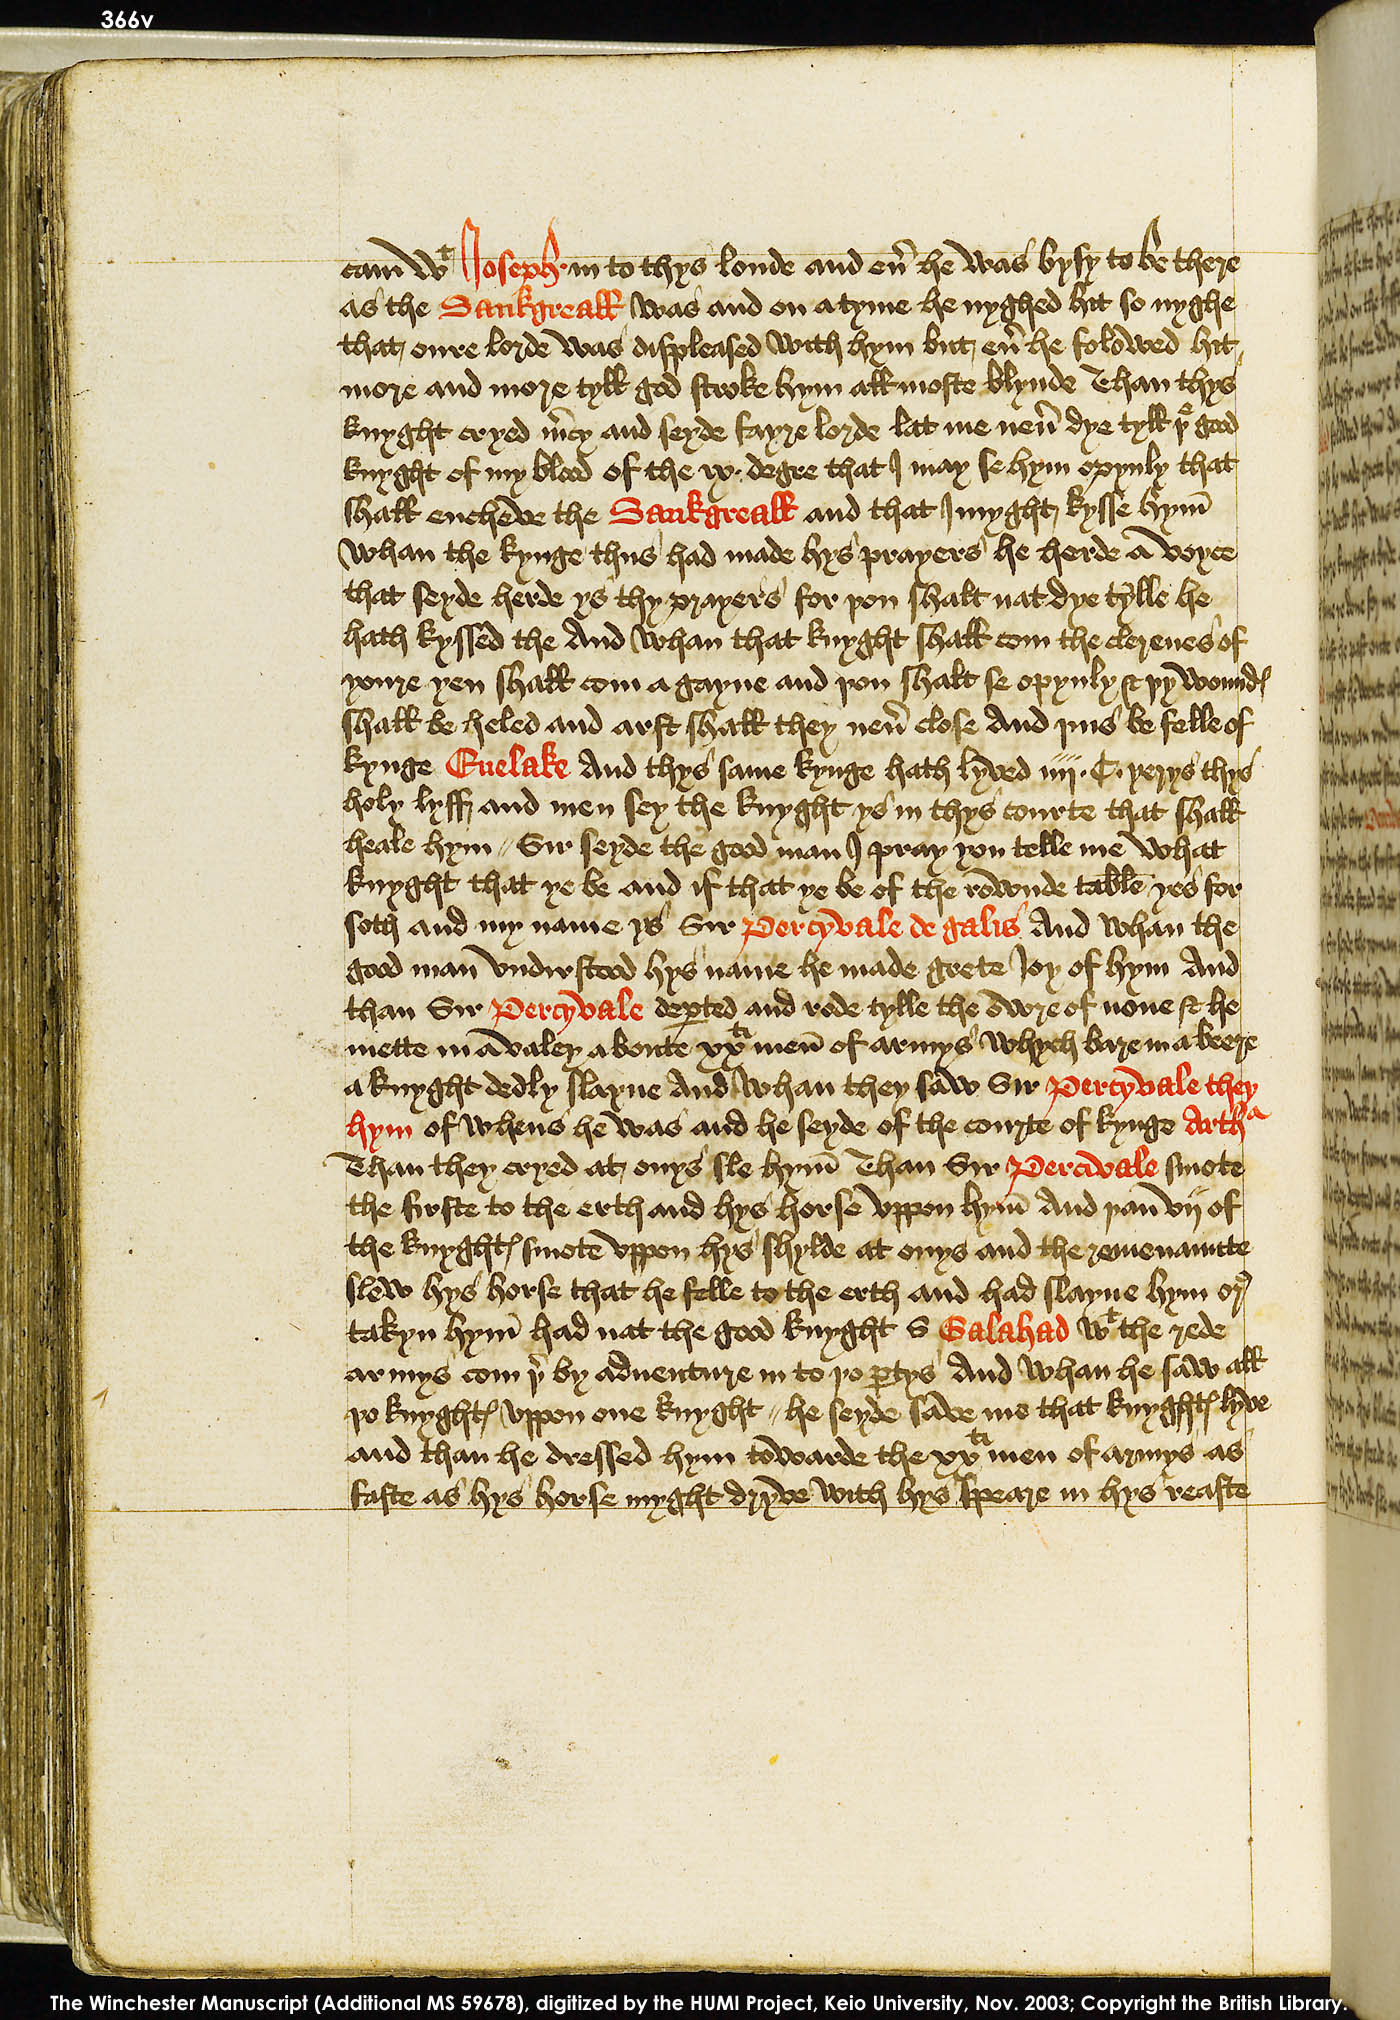 366v
cam wᵗ Joseph in to thys londe and eu̅ he was bysy to be there
as the Sankgreall was and on a tyme he nyghed hit so nyghe
that oure lorde was displeased with hym but eu̅ he folowed hit
more and more tyll god stroke hym all moste blynde Than thys
knyght cryed m̅cy and seyde fayre lorde lat me neu̅ dye tyll þe good
knyght of my blood of the ix. degre that I may se hym opynly that
shall encheve the Sankgreall and that I myght kysse hym̅
Whan the kynge thus had made hys prayers he herde a voyce
that seyde herde ys thy prayers for þou shalt nat dye tylle he
hath kyssed the And whan that knyght shall com the clerenes of
youre yen shall com a gayne and þou shalt se opynly & þy woundꝭ
shall be heled and arst shall they neu̅ close And þus be felle of
kynge Euelake And thys same kynge hath lyved iiij. C. yerys thys
holy lyff and men sey the knyght ys in thys courte that shall
heale hym // Sir seyde the good man I pray you telle me what
knyght that ye be and if that ye be of the rownde table yes for
soth and my name ys Sir Percyvale de galis And whan the
good man vndirstood hys name he made grete Joy of hym And
than Sir Percyvale dep̲ted and rode tylle the owre of none & he
mette in a valey a boute xxᵗⁱ men̅ of armys whych bare in a beere
a knyght dedly slayne And whan they saw Sir Percyvale they
hym of whens he was and he seyde of the courte of kynge Arthᵃ
Than they cryed at onys sle hym̅ Than Sir Percivale smote
the firste to the erth and hys horse vppon hym̅ And þan̅ vij of
the knyghtꝭ smote vppon hys shylde at onys and the remenaunte
slew hys horse that he felle to the erth and had slayne hym or
takyn hym̅ had nat the good knyght S Galahad wᵗ the rede
armys com þe by adventure in to þo p̲tys And whan he saw all
þo knyghtꝭ vppon one knyght // he seyde save me that knyghtꝭ lyve
and than he dressed hym towarde the xxᵗⁱ men of armys as
faste as hys horse myght dryve with hys speare in hys reaste
The Winchester Manuscript (Additional MS 59678), digitized by the HUMI Project, Keio University, Nov. 2003; Copyright the British Library.